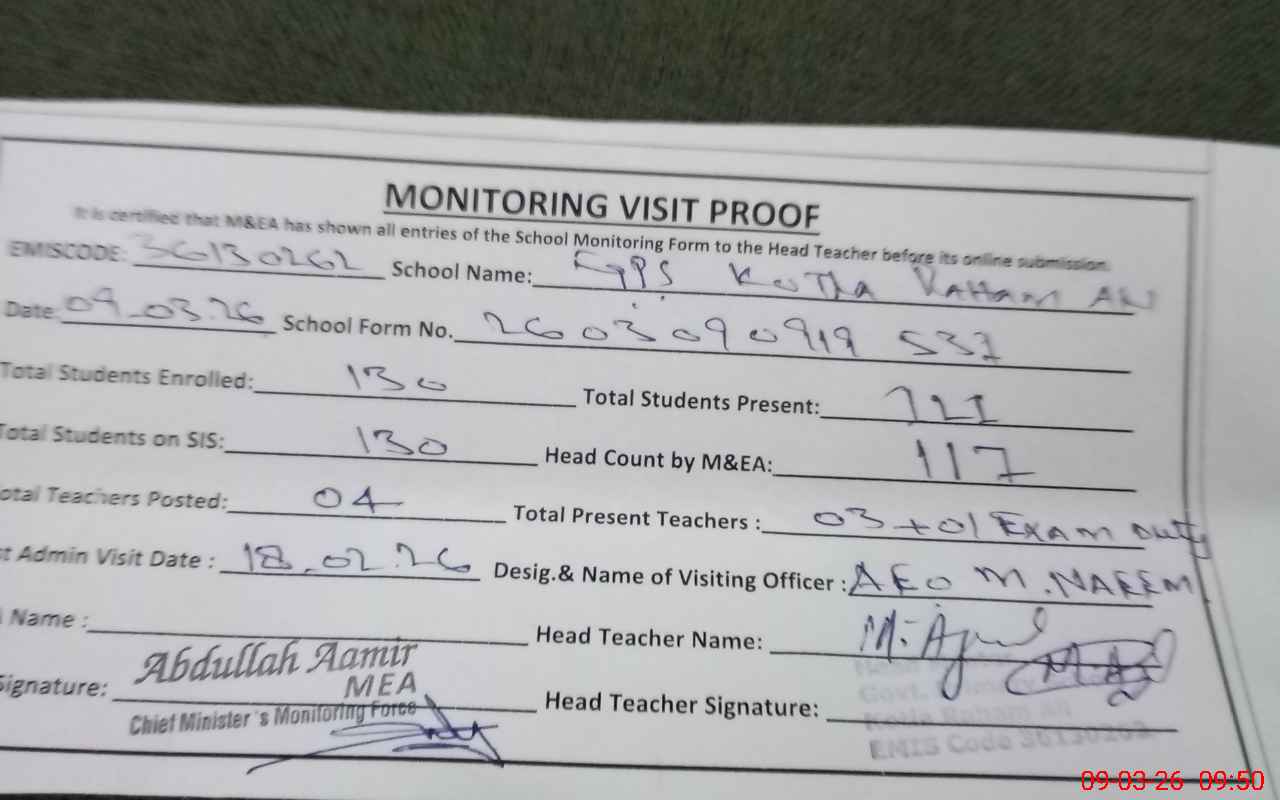 MONITORING VISIT PROOF
It is certified that M&EA has shown all entries of the School Monitoring Form to the Head Teacher before its online submission.
EMISCODE: 36130262 School Name: GPS Kotla Raham Ali
Date: 09.03.26 School Form No. 2603090919537
Total Students Enrolled: 130 Total Students Present: 121
Total Students on SIS: 130 Head Count by M&EA: 117
otal Teachers Posted: 04 Total Present Teachers : 03+01 Exam Duty
st Admin Visit Date : 18.02.26 Desig.& Name of Visiting Officer : AEO M.NAEEM
Name : Head Teacher Name:
Abdullah Aamir
MEA
Signature: Head Teacher Signature:
Chief Minister's Monitoring Force
EMIS Code 36130262
09-03-26 09:50